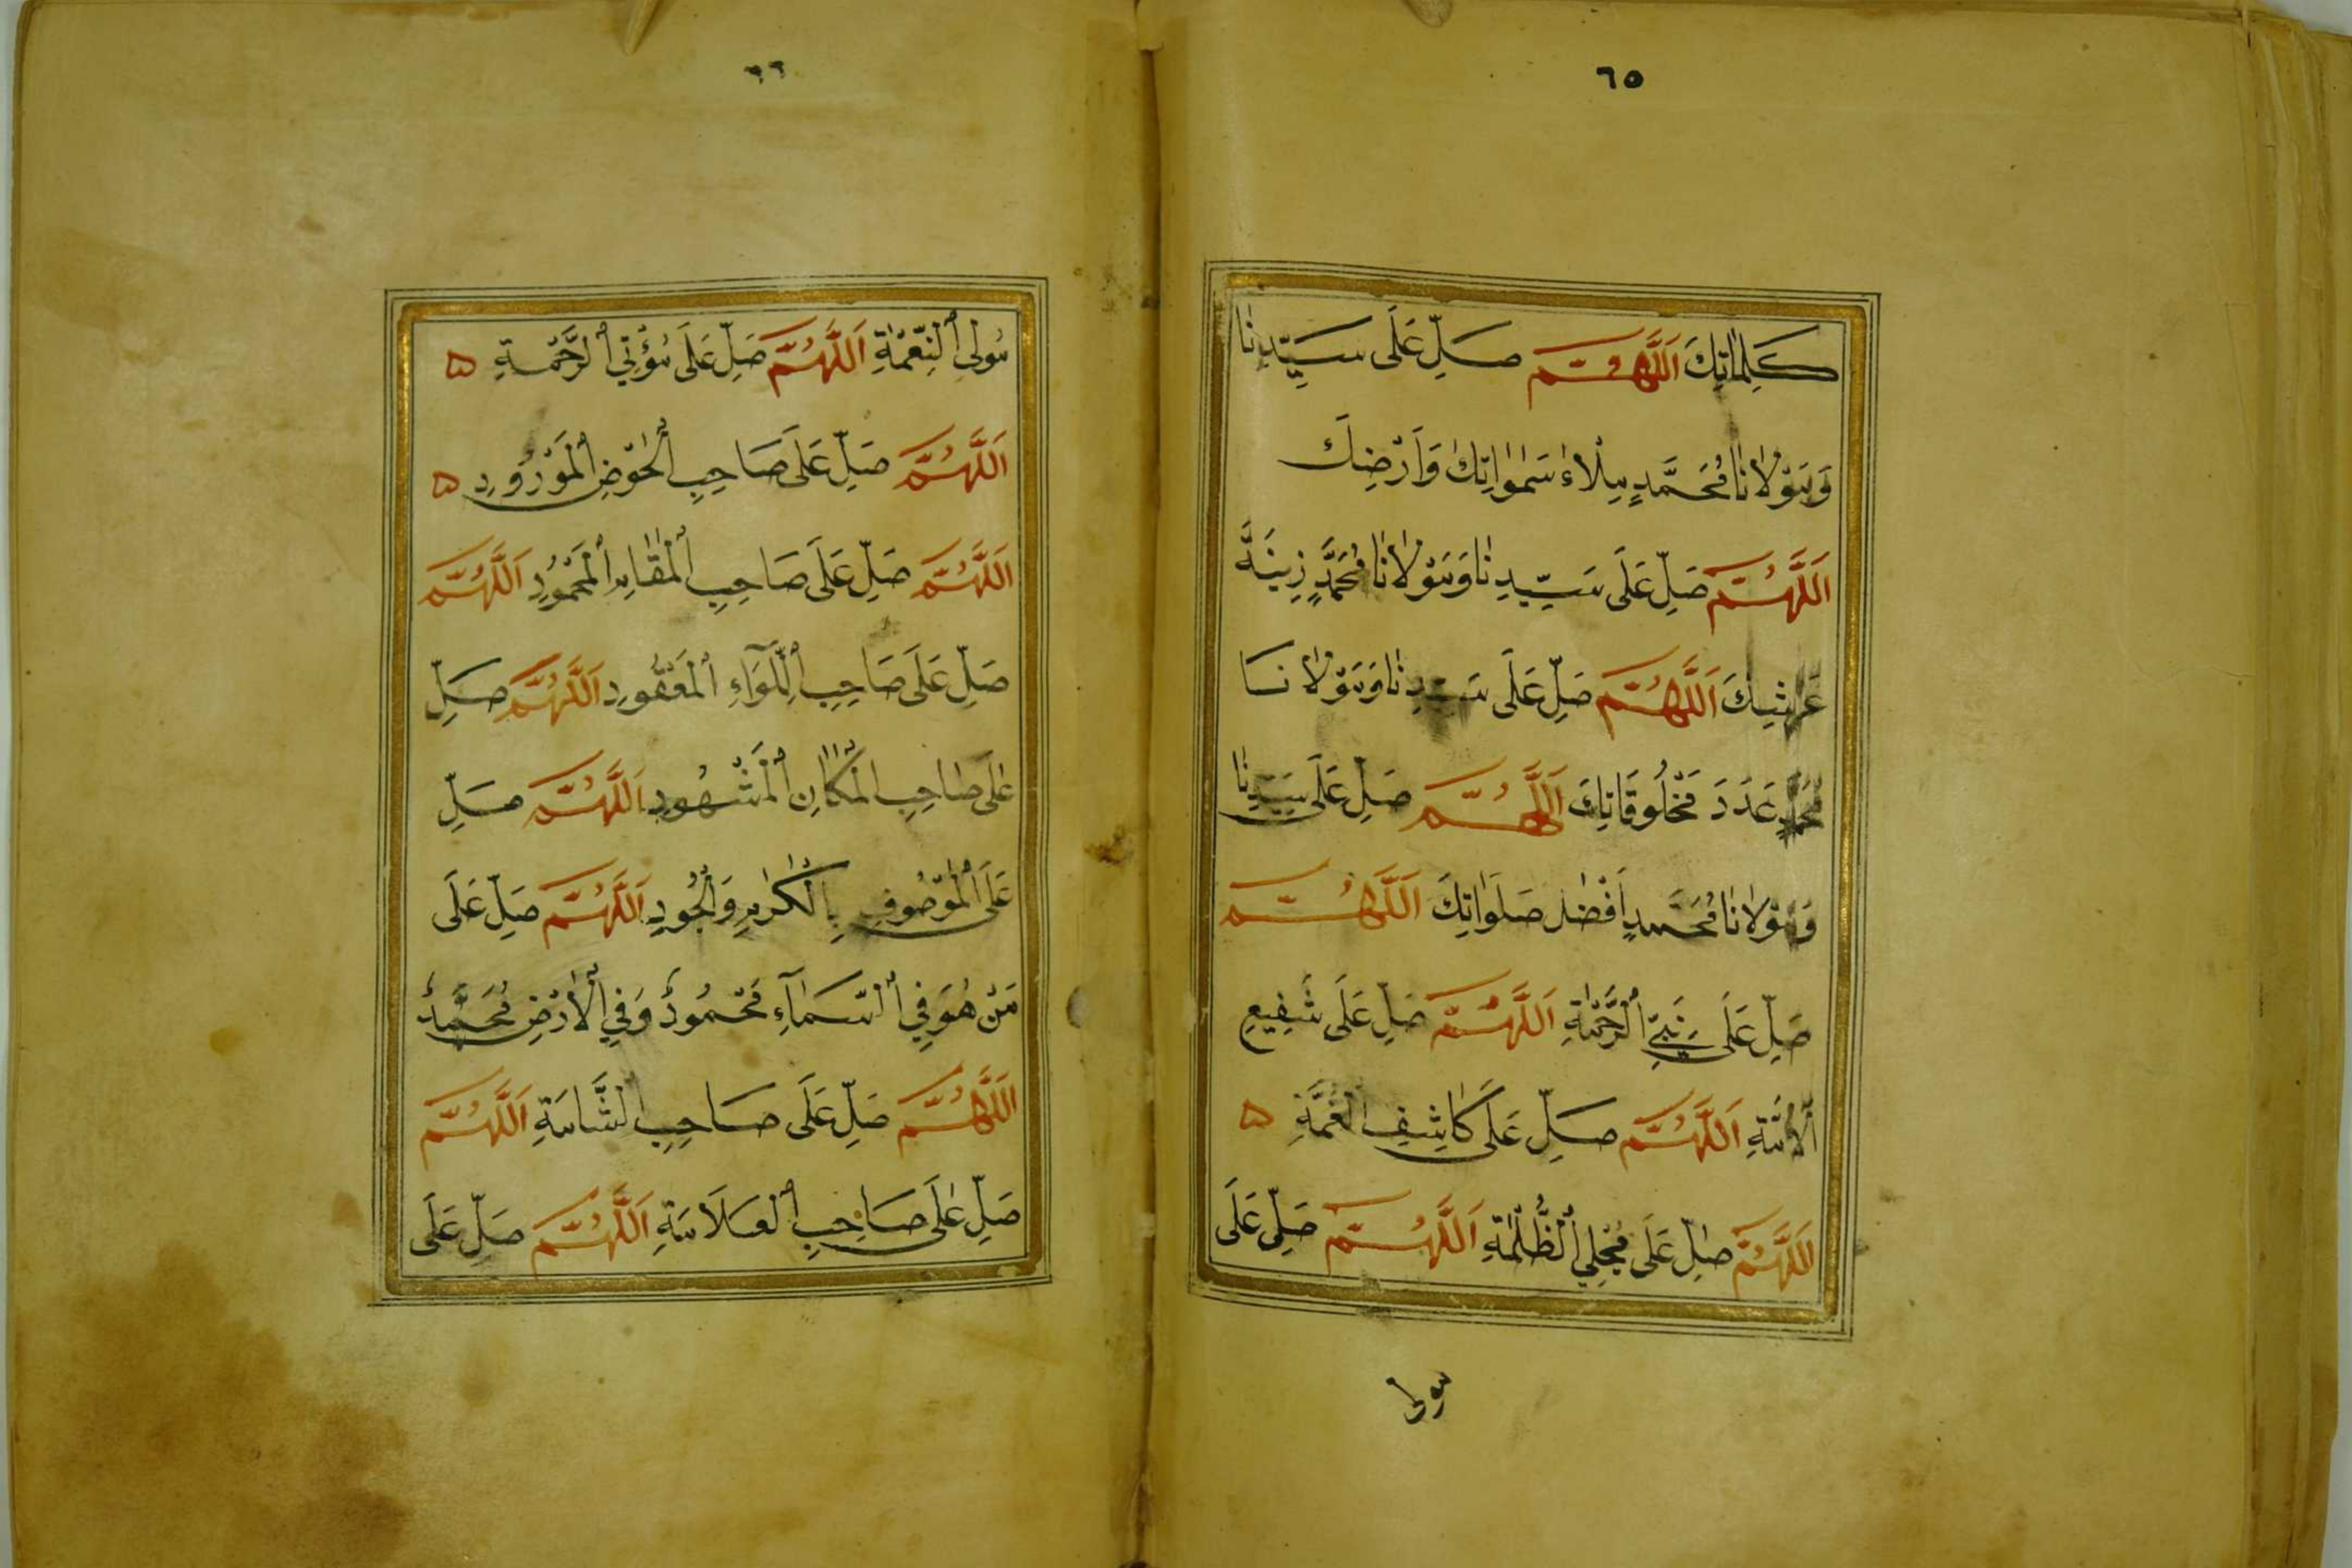 ٦٥
كَلِمَاتِكَ اَللَّهُمَّ صَلِّ عَلَى سَيِّدِنَا
وَمَوْلَانَا مُحَمَّدٍ مِلْاءَ سَمٰوَاتِكَ وَاَرْضِكَ
اَللَّهُمَّ صَلِّ عَلَى سَيِّدِنَا وَمَوْلَانَا مُحَمَّدٍ زِينَةَ
عَرْشِكَ اَللَّهُمَّ صَلِّ عَلَى سَيِّدِنَا وَمَوْلَانَا
مُحَمَّدٍ عَدَدَ مَخْلُوقَاتِكَ اَللَّهُمَّ صَلِّ عَلَى سَيِّدِنَا
وَمَوْلَانَا مُحَمَّدٍ اَفْضَلَ صَلَوَاتِكَ اَللَّهُمَّ
صَلِّ عَلَى نَبِيِّ الرَّحْمَةِ اَللَّهُمَّ صَلِّ عَلَى شَفِيعِ
الْاُمَّةِ اَللَّهُمَّ صَلِّ عَلَى كَاشِفِ الْغُمَّةِ ۵
اَللَّهُمَّ صَلِّ عَلَى مُجْلِي الظُّلْمَةِ اَللَّهُمَّ صَلِّ عَلَى
مولى
٦٦
مُولِي النِّعْمَةِ اَللَّهُمَّ صَلِّ عَلَى مُؤْتِي الرَّحْمَةِ ۵
اَللَّهُمَّ صَلِّ عَلَى صَاحِبِ الْحَوْضِ الْمَوْرُودِ ۵
اَللَّهُمَّ صَلِّ عَلَى صَاحِبِ الْمَقَامِ الْمَحْمُودِ اَللَّهُمَّ
صَلِّ عَلَى صَاحِبِ اللِّوَآءِ الْمَعْقُودِ اَللَّهُمَّ صَلِّ
عَلَى صَاحِبِ الْمَكَانِ الْمَشْهُودِ اَللَّهُمَّ صَلِّ
عَلَى الْمَوْصُوفِ بِالْكَرَمِ وَالْجُودِ اَللَّهُمَّ صَلِّ عَلَى
مَنْ هُوَ فِي السَّمَآءِ مَحْمُودٌ وَفِي الْاَرْضِ مُحَمَّدٌ
اَللَّهُمَّ صَلِّ عَلَى صَاحِبِ الشَّامَةِ اَللَّهُمَّ
صَلِّ عَلَى صَاحِبِ الْعَلَامَةِ اَللَّهُمَّ صَلِّ عَلَى